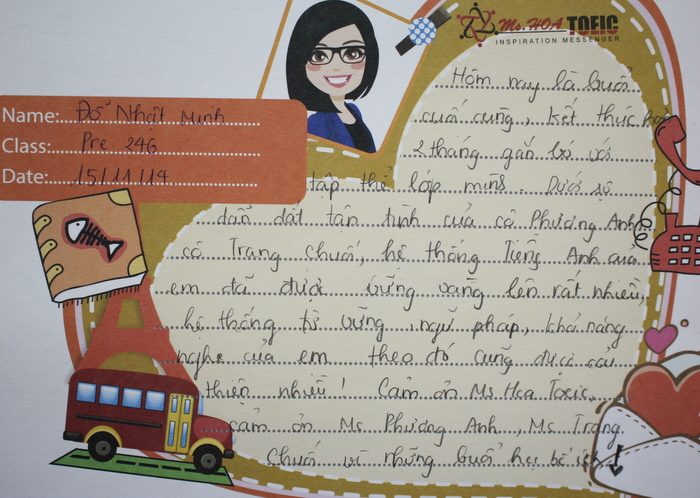 Ms.HOA TOEIC
INSPIRATION MESSENGER
Name: Đỗ Nhật Minh
Class: Pre 246
Date: 15/11/14
Hôm nay là buổi
cuối cùng, kết thúc
2 tháng gắn bó với
tập thể lớp mình. Dưới sự
dẫn dắt tận tình của cô Phương Anh
cô Trang Chuối, hệ thống Tiếng Anh của
em đã được vững vàng lên rất nhiều,
hệ thống từ vựng, ngữ pháp, khả năng
nghe của em theo đó cũng được cải
thiện nhiều! Cảm ơn Ms Hoa Toeic,
cảm ơn Ms Phương Anh, Ms Trang
Chuối vì những buổi học bổ ích